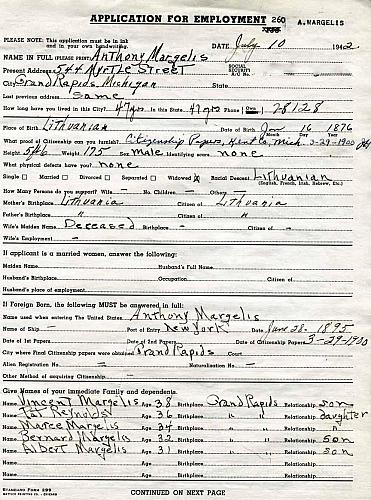 APPLICATION FOR EMPLOYMENT 260 A. MARGELIS
PLEASE NOTE: This application must be in ink and in your own handwriting. DATE July 10 1942
NAME IN FULL (PLEASE PRINT) Anthony Margelis
Present Address 544 Myrtle Street SOCIAL SECURITY A/C No.
City Grand Rapids, Michigan State
Last previous address Same
How long have you lived in this City? 47 yrs. In this State 47 yrs Phone Own 28128
Place of Birth Lithuanian Date of Birth Jan 16 1876
Month Day Year
What proof of Citizenship can you furnish? Citizenship Papers, Kent Co, Mich. 3-29-1900
Height 5' 6 Weight 175 Sex male Identifying scars none
What physical defects have you? none
Single Married Divorced Separated Widowed X Racial Descent Lithuanian
(English, French, Irish, Hebrew, Etc.)
How Many Persons do you support? Wife - No. Children - Others
Mother's Birthplace Lithuania Citizen of Lithuania
Father's Birthplace " Citizen of "
Wife's Maiden Name Deceased Birthplace - Citizen of -
Wife's Employment -
If applicant is a married women, answer the following:
Maiden Name Husband's Full Name
Husband's Birthplace Occupation Citizen of
Husband's place of employment
If Foreign Born, the following MUST be answered in full:
Name used when entering The United States Anthony Margelis
Name of Ship - Port of Entry New York Date June 28 - 1895
Date of 1st Papers Date of 2nd Papers Date of Citizenship Papers 3-29-1900
City where Final Citizenship papers were obtained Grand Rapids Court
Alien Registration No. - Naturalization No. -
Other Method of acquiring Citizenship -
Give Names of your Immediate Family and dependents.
Name Vincent Margelis Age 38 Birthplace Grand Rapids Relationship son
Name Pat Reynolds Age 36 Birthplace " " Relationship daughter
Name Marce Margelis Age 34 Birthplace " " Relationship "
Name Bernard Margelis Age 32 Birthplace " " Relationship son
Name Albert Margelis Age 31 Birthplace " " Relationship son
STANDARD FORM 299
CONTINUED ON NEXT PAGE